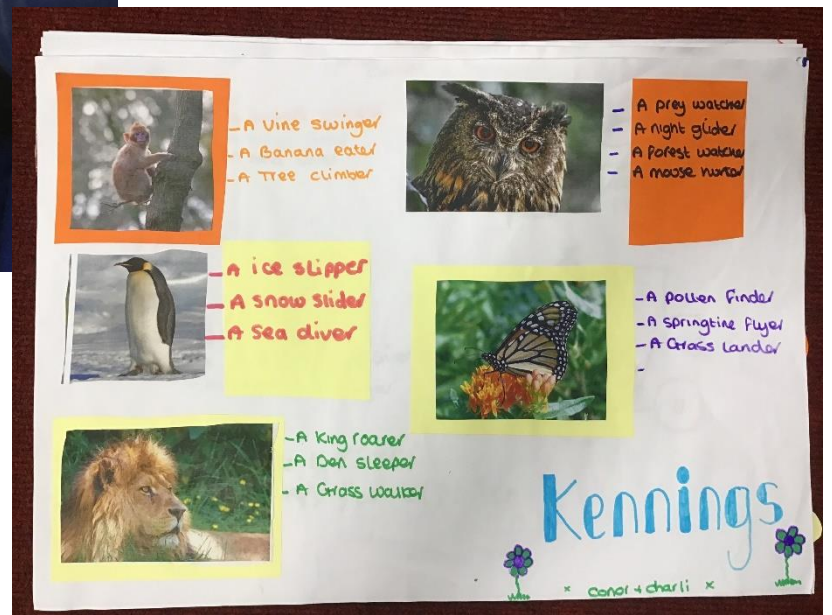 - A vine swinger
- A Banana eater
- A Tree climber
- A prey watcher
- A night glider
- A forest watcher
- A mouse hunter
- A ice slipper
- A snow slider
- A sea diver
- A pollen finder
- A springtime flyer
- A Grass lander
-
- A King roarer
- A Den sleeper
- A Grass walker
Kennings
x conor + charli x